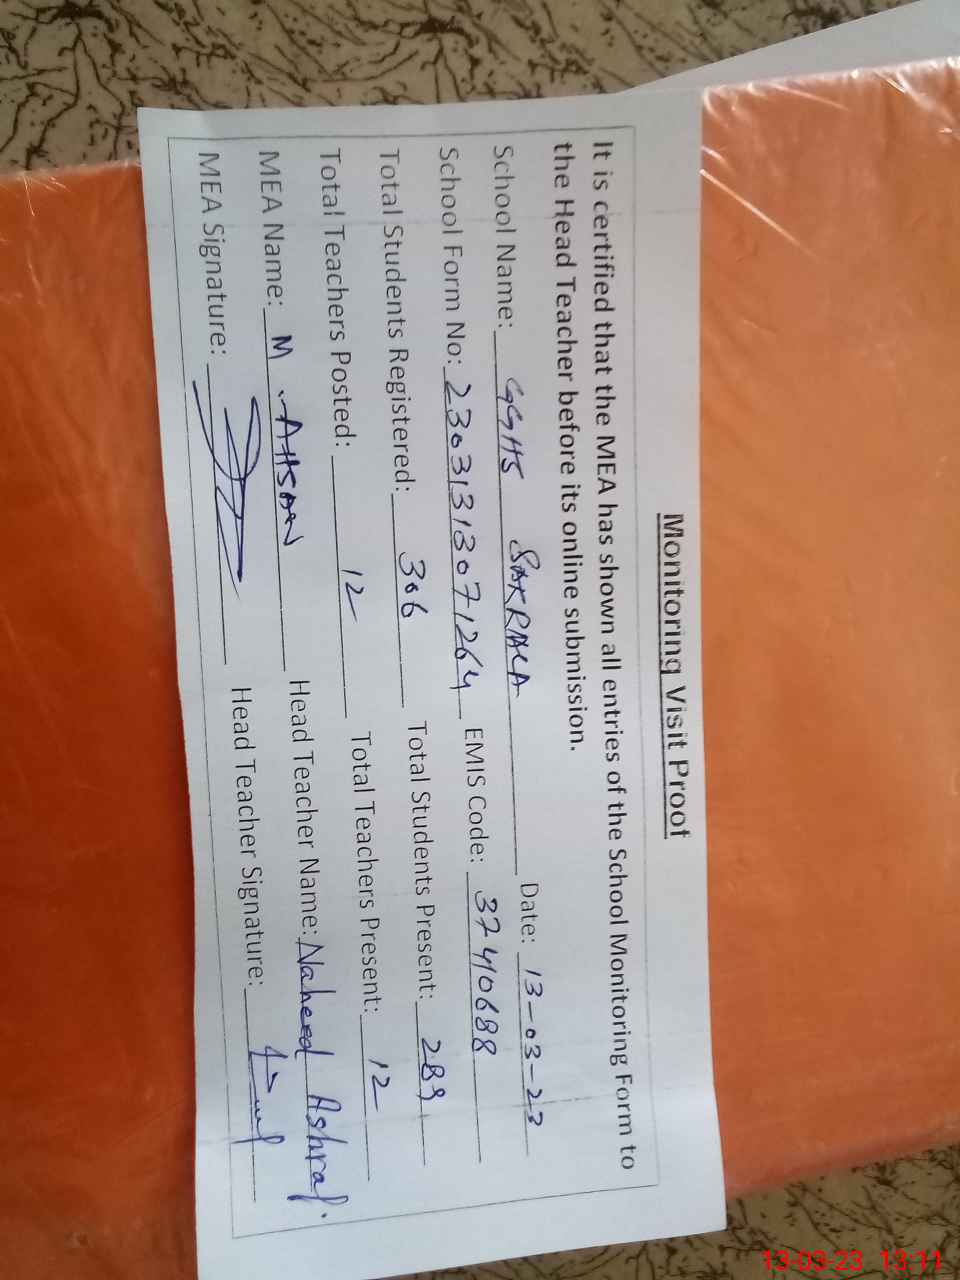 Monitoring Visit Proof
It is certified that the MEA has shown all entries of the School Monitoring Form to
the Head Teacher before its online submission.
School Name: GGHS SAKRALA Date: 13-03-23
School Form No: 23031313071264 EMIS Code: 37410688
Total Students Registered: 306 Total Students Present: 289
Total Teachers Posted: 12 Total Teachers Present: 12
MEA Name: M. AHSAN Head Teacher Name: Naheed Ashraf.
MEA Signature: Head Teacher Signature:
13-03-23 13:11